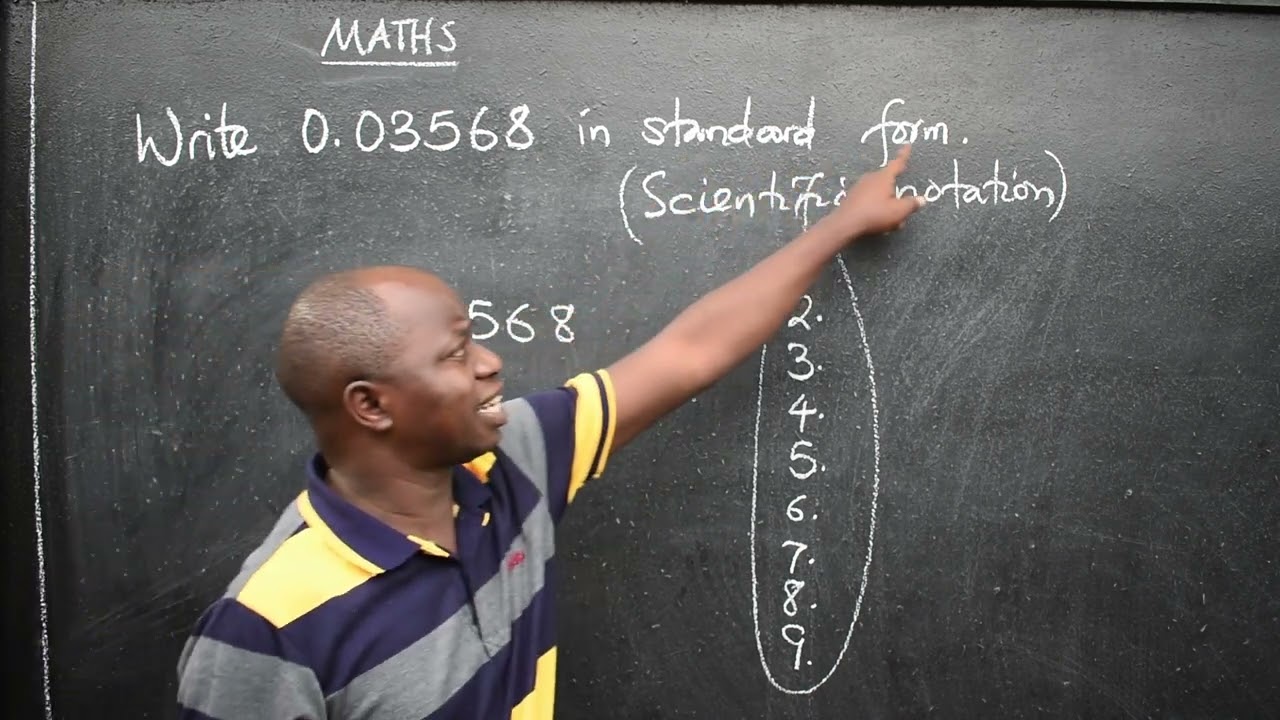 MATHS
Write 0.03568 in standard form.
(Scientific notation)
568
2.
3.
4.
5.
6.
7.
8.
9.